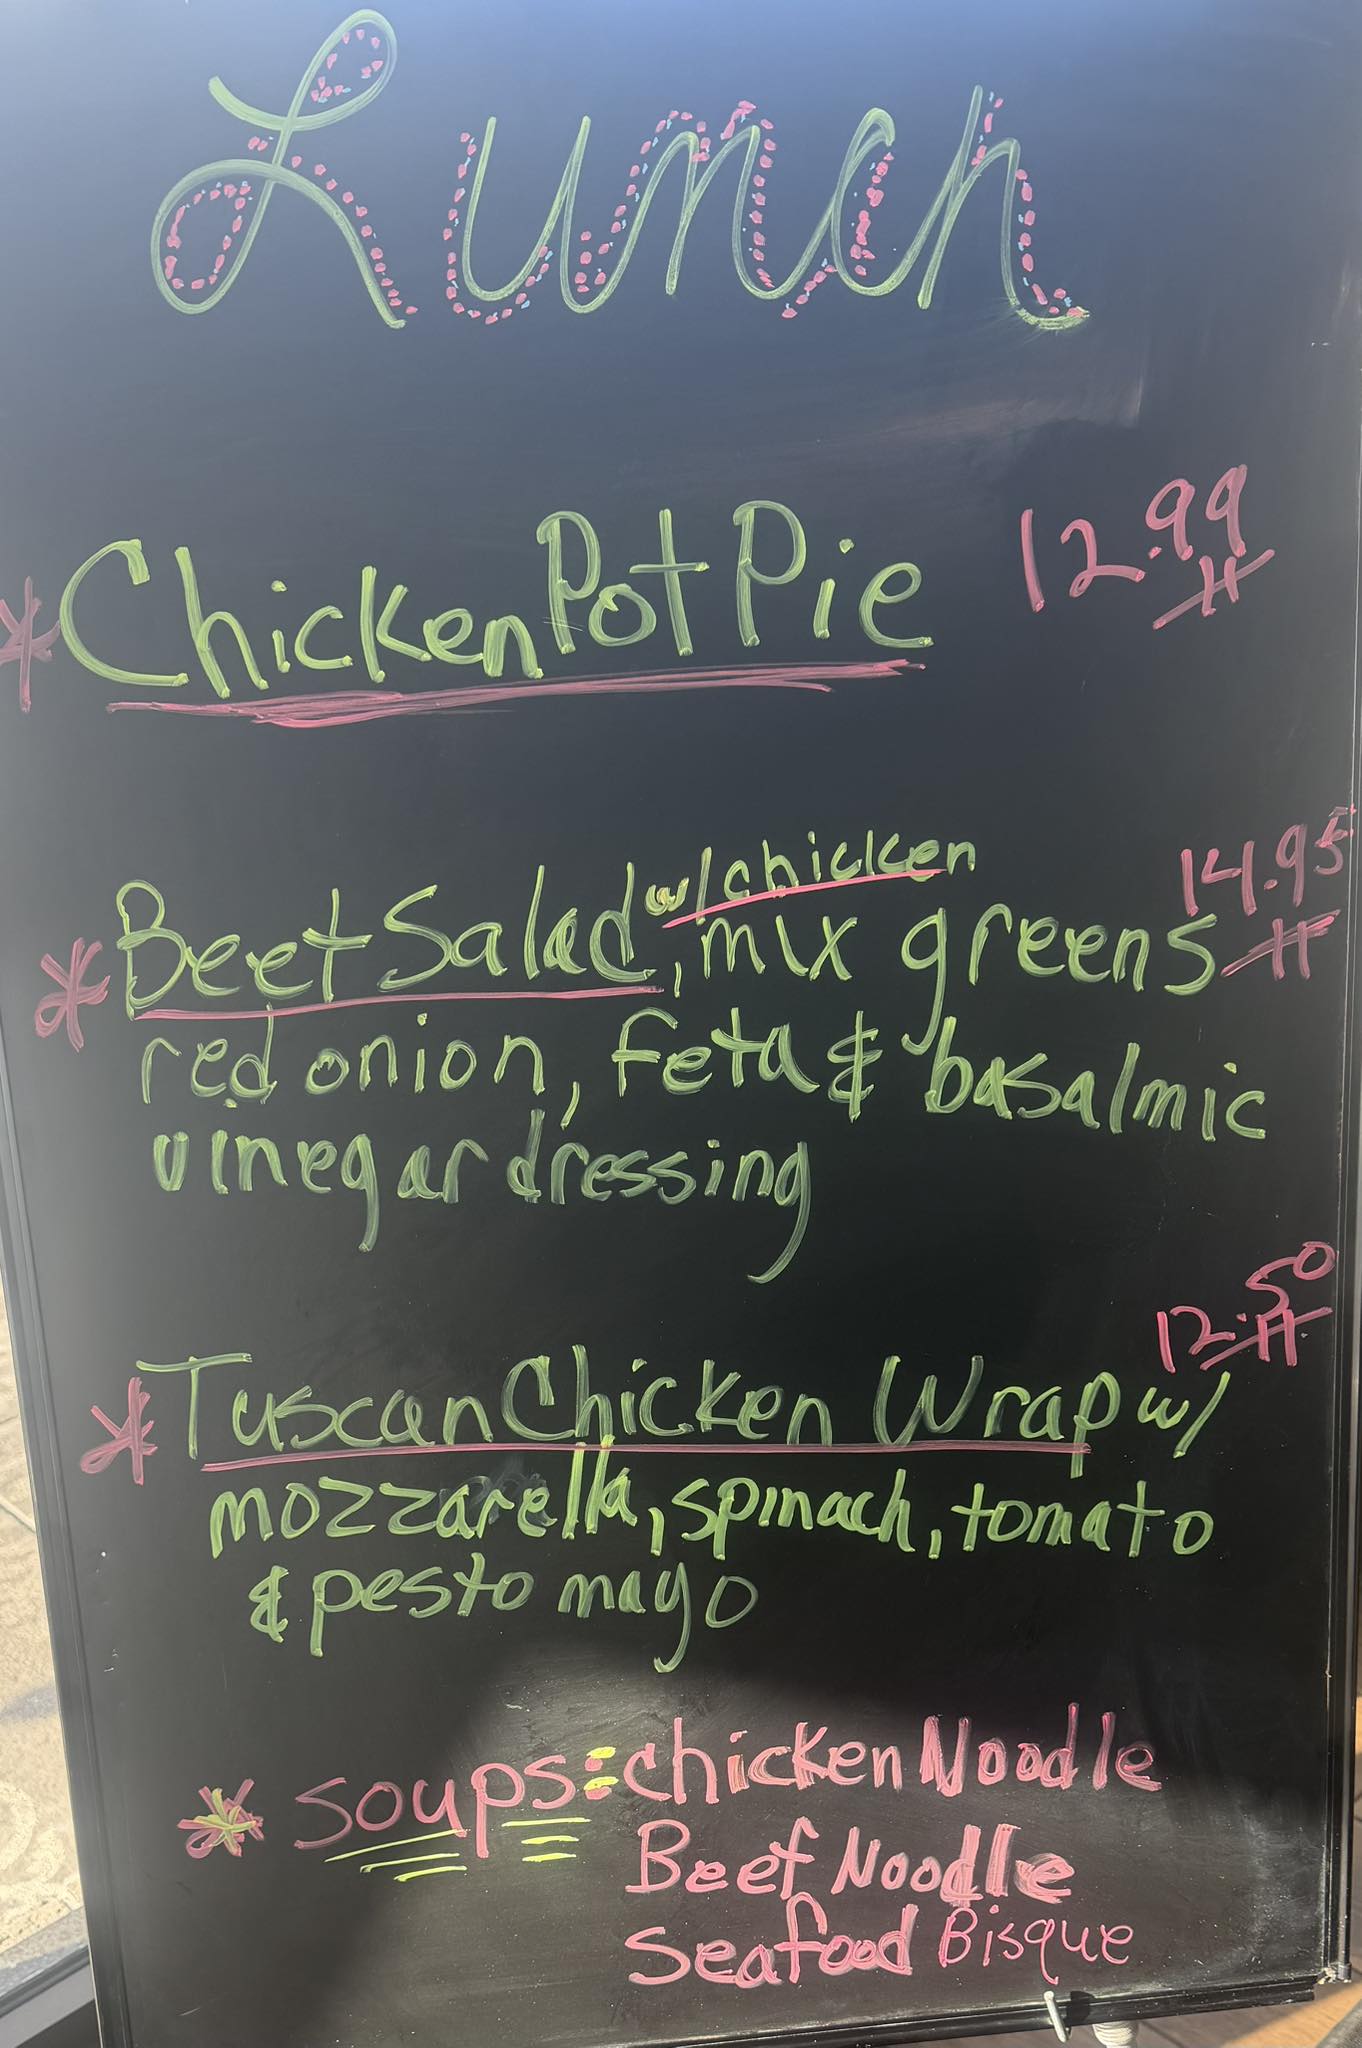 Lunch
* Chicken Pot Pie 12.99
* Beet Salad w/chicken, mix greens 14.95
red onion, feta & basalmic
vinegar dressing
* Tuscan Chicken Wrap w/ 12.50
mozzarella, spinach, tomato
& pesto mayo
* Soups: Chicken Noodle
Beef Noodle
Seafood Bisque